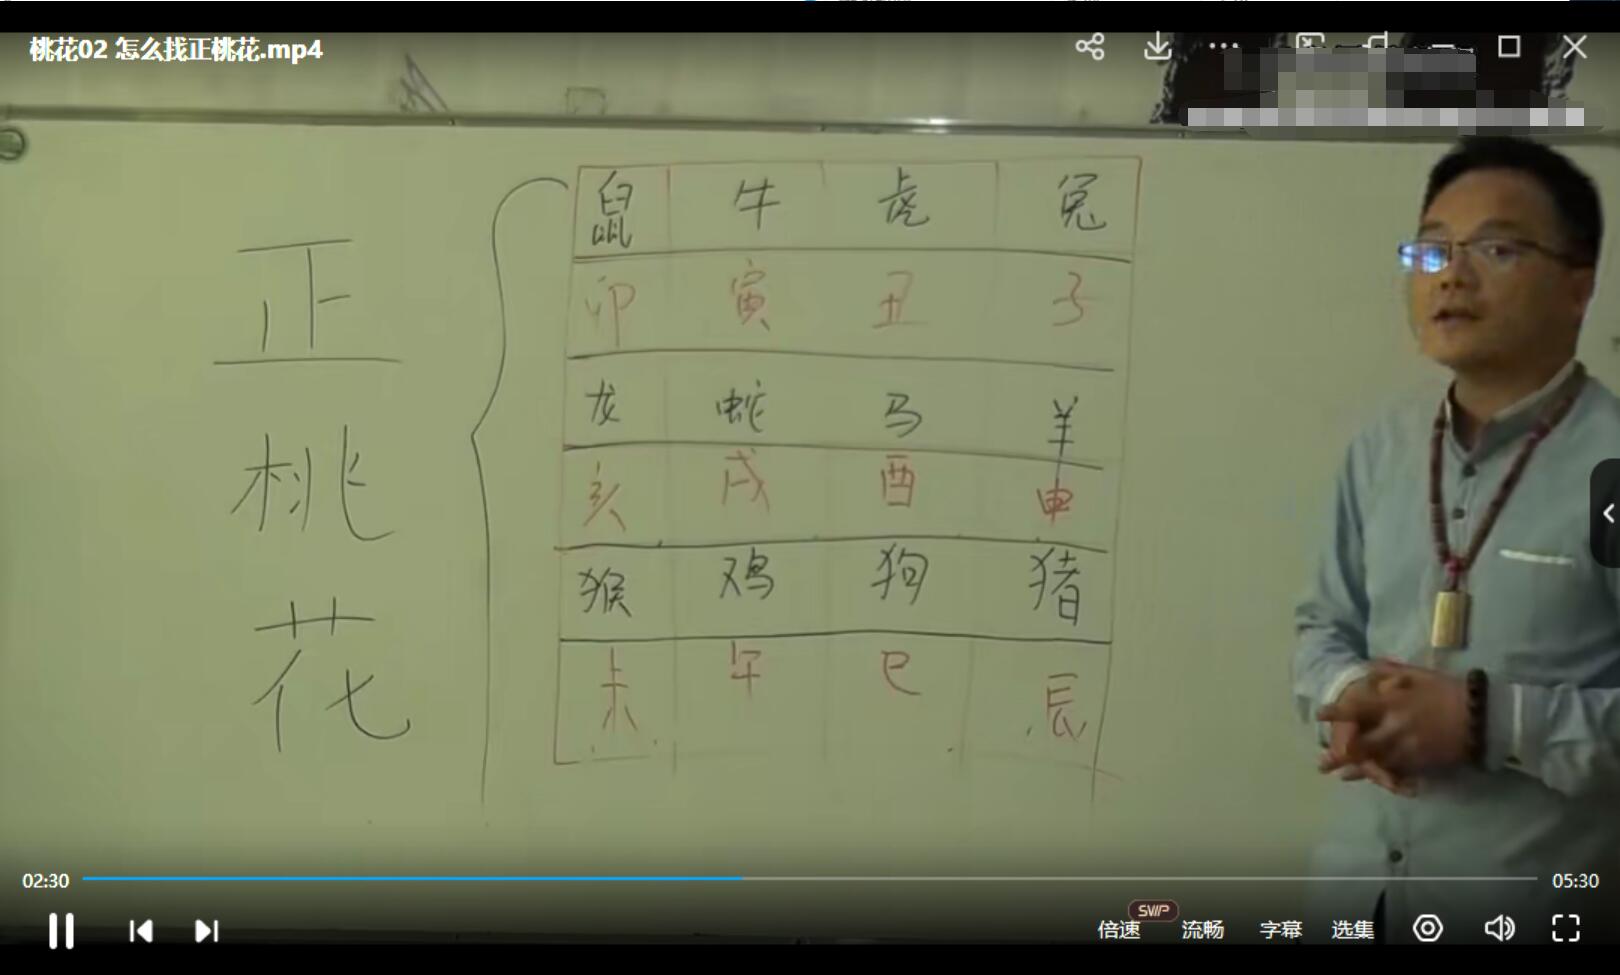 桃花02 怎么找正桃花.mp4
正桃花
鼠 牛 虎 兔
卯 寅 丑 子
龙 蛇 马 羊
亥 戌 酉 申
猴 鸡 狗 猪
未 午 巳 辰
02:30
05:30
SVIP
倍速 流畅 字幕 选集